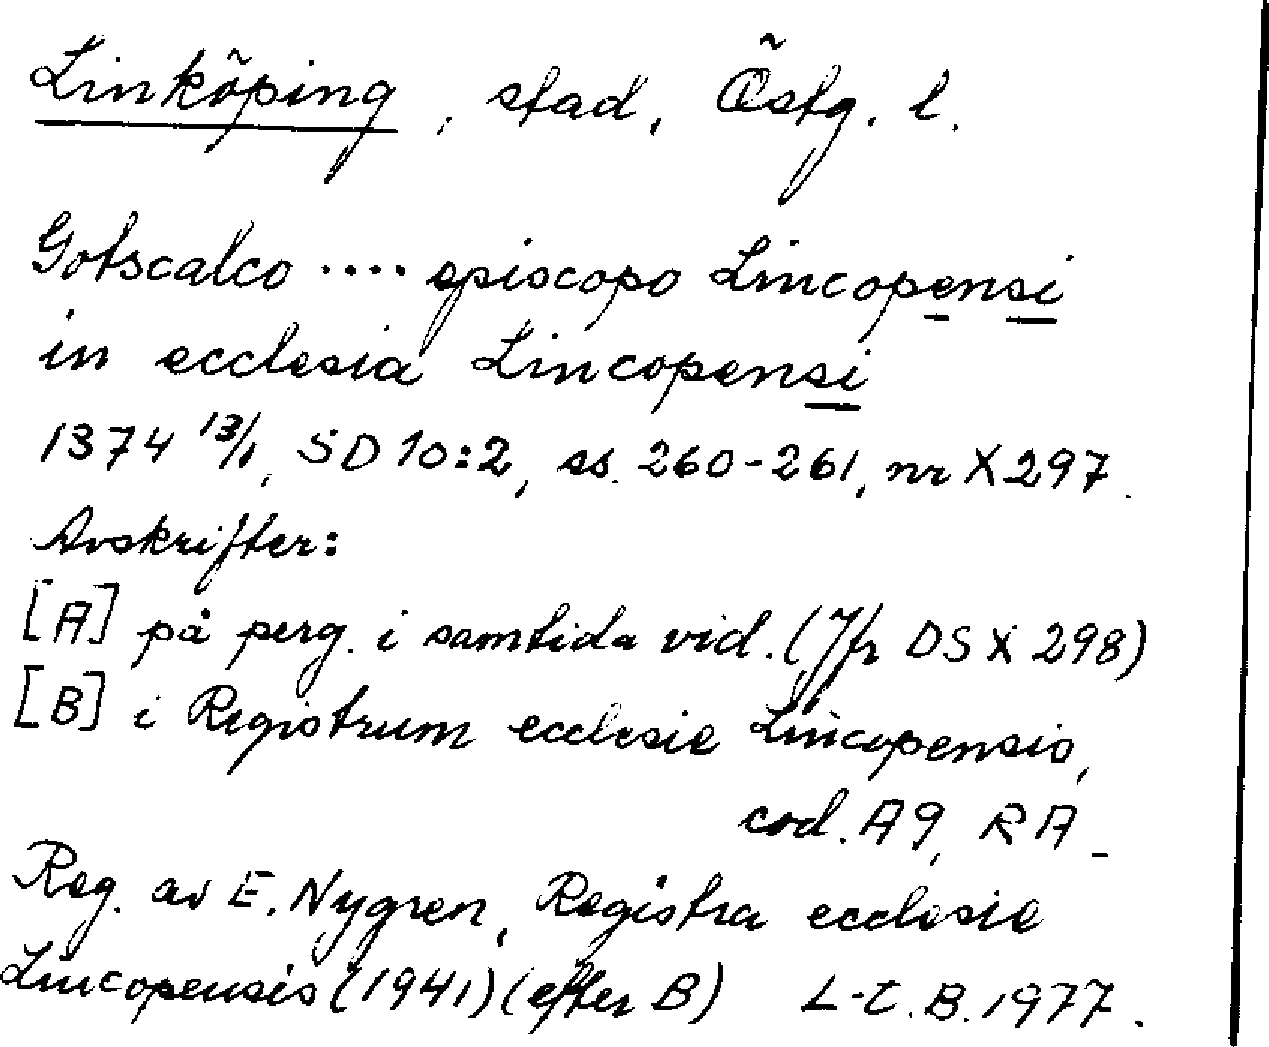 Linköping, stad, Östg. l.
Gotscalco .... episcopo Lincopensi
in ecclesia Lincopensi
1374 13/1, SD 10:2, ss. 260-261, nr X 297.
Avskrifter:
[A] på perg. i samtida vid. (Jfr DS X 298)
[B] i Registrum ecclesie Lincopensis,
cod. A 9, RA.
Reg. av E. Nygren, Registra ecclesie
Lincopensis (1941) (efter B) L-C.B. 1977.